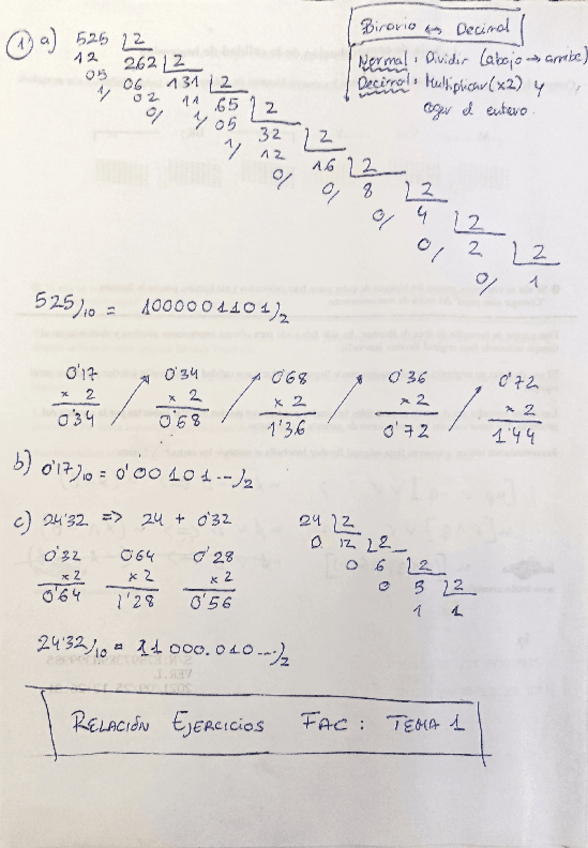 Binario ↔ Decimal
Normal: Dividir (abajo → arriba)
Decimal: Multiplicar (x2) y
coger el entero.
1 a) 525 | 2
12 262 | 2
05 06 131 | 2
1/ 02 11 65 | 2
0/ 1/ 05 32 | 2
1/ 12 16 | 2
0/ 0/ 8 | 2
0/ 4 | 2
0/ 2 | 2
0/ 1
525/10 = 1000001101/2
0'17 0'34 0'68 0'36 0'72
x 2 x 2 x 2 x 2 x 2
0'34 0'68 1'36 0'72 1'44
b) 0'17/10 = 0'00101.../2
c) 24'32 => 24 + 0'32
0'32 0'64 0'28
x 2 x 2 x 2
0'64 1'28 0'56
24 | 2
0 12 | 2
0 6 | 2
0 3 | 2
1 1
24'32/10 = 11000.010.../2
RELACIÓN EJERCICIOS FAC: TEMA 1